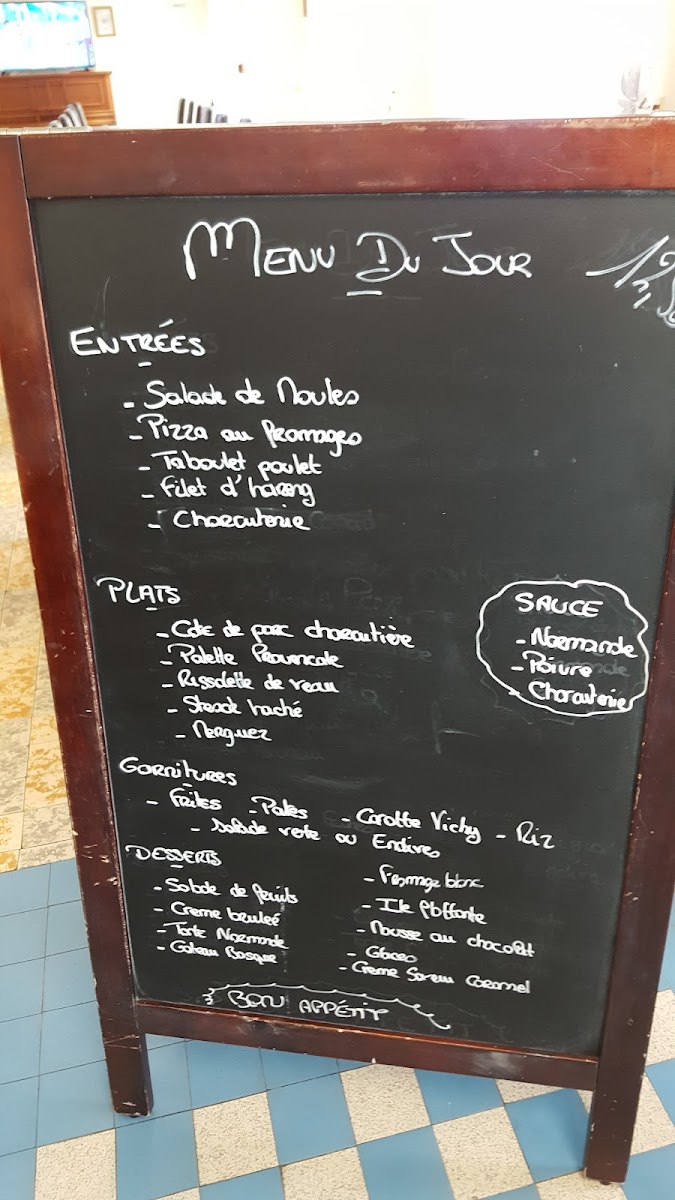 MENU DU JOUR
ENTRÉES
- Salade de Moules
- Pizza au fromages
- Taboulet poulet
- Filet d'hareng
- Charcuterie
PLATS
- Cote de porc charcutière
- Palette Provencale
- Rissolette de veau
- Steack haché
- Merguez
SAUCE
- Normande
- Poivre
- Charcuterie
GARNITURES
- Frites - Pates - Carotte Vichy - Riz
- Salade verte ou Endives
DESSERTS
- Salade de fruits
- Creme bruleé
- Tarte Normande
- Gateau Basque
- Fromage blanc
- Ile flottante
- Mousse au chocolat
- Glaces
- Crème Saveur Caramel
BON APPÉTIT